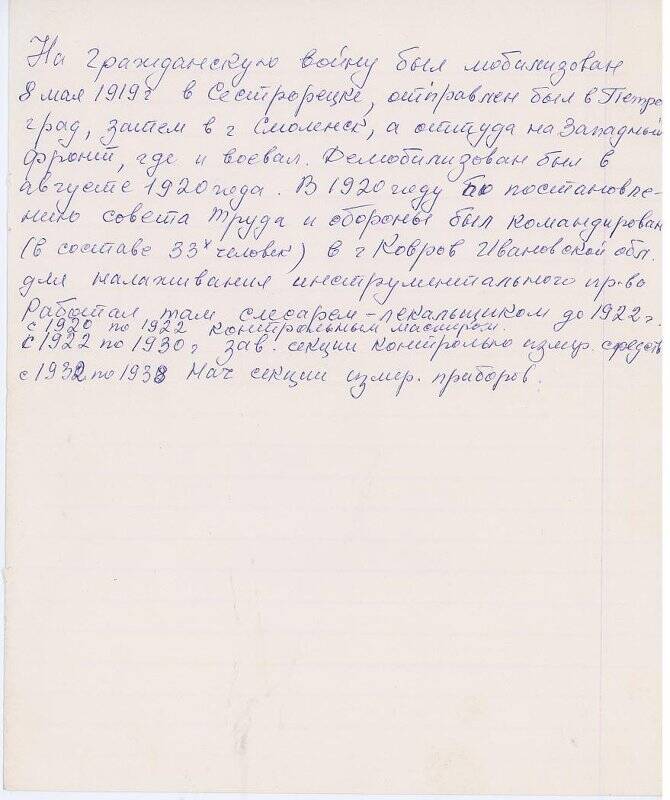 На Гражданскую войну был мобилизован
8 мая 1919 г в Сестрорецке, отправлен был в Петро
град, затем в г Смоленск, а оттуда на Западный
фронт, где и воевал. Демобилизован был в
августе 1920 года. В 1920 году по постановле-
нию совета Труда и обороны был командирован
(в составе 33х человек) в г Ковров Ивановской обл.
для налаживания инструментального пр-ва
Работал там слесарем-лекальщиком до 1922 г.
с 1920 по 1922 контрольным мастером.
с 1922 по 1930 г зав. секции контрольно измер. средств
с 1932 по 1938 Нач секции измер. приборов.